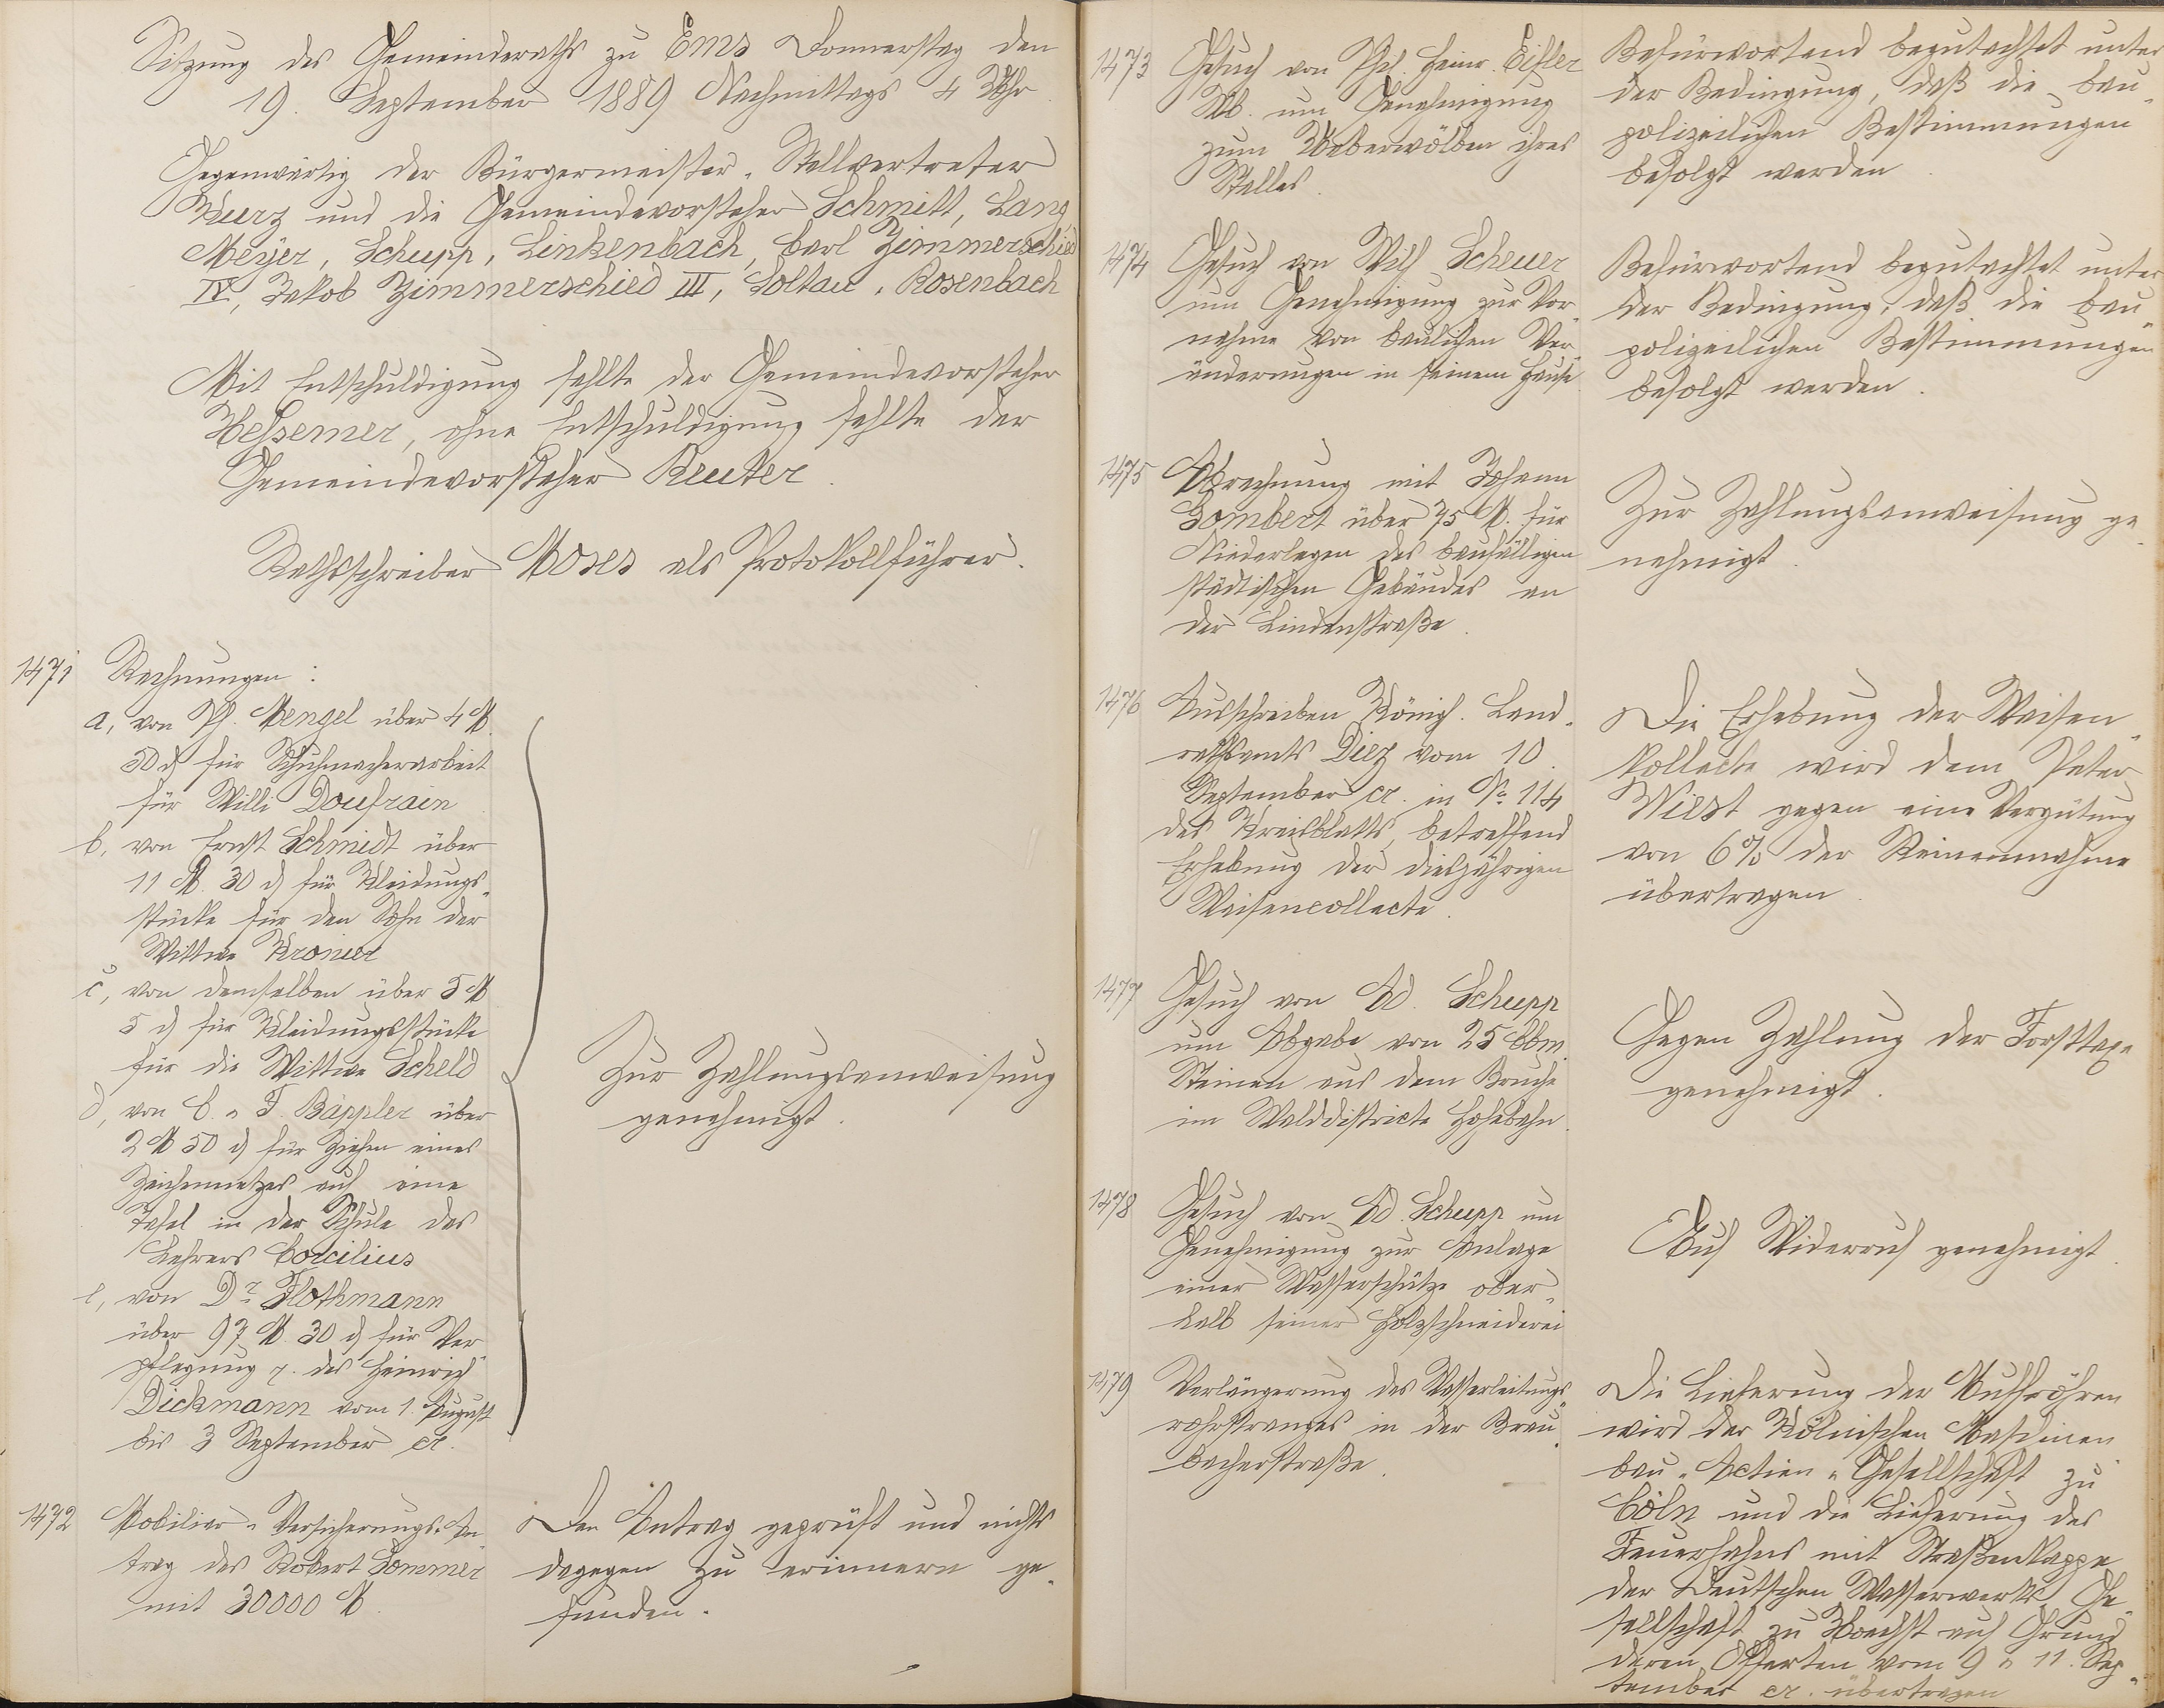 Sitzung des Gemeinderaths zu Ems Donnerstag den
19. September 1889 Nachmittags 4 Uhr
Gegenwärtig der Bürgermeister-Stellvertreter
Kurz und die Gemeindevorsteher Schmitt, Lang
Meyer, Schupp, Linkenbach, Carl Zimmerschied
IV, Jakob Zimmerschied III, Soltau, Rosenbach
Mit Entschuldigung fehlte der Gemeindevorsteher
Helsemer, ohne Entschuldigung fehlte der
Gemeindevorsteher Reuter.
Rathsschreiber Moses als Protokollführer.
1471 Rechnungen:
a, von Ph. Mengel über 4 M.
50 ₰ für Schuhmacherarbeit
für Willi Doufrain
b, von Ernst Schmidt über
11 M. 30 ₰ für Kleidungs-
stücke für den Sohn der
Wittwe Kroner
c, von demselben über 5 M
5 ₰ für Kleidungsstücke
für die Wittwe Scheld
d, von C. & F. Bäppler über
2 M 50 ₰ für Ziehen eines
Zeichennetzes auf eine
Tafel in der Schule des
Lehrers Corcilius
e, von Dr. Flothmann
über 97 M. 30 ₰ für Ver-
pflegung p. des Heinrich
Dickmann vom 1. August
bis 3 September cr.
Zur Zahlungsanweisung
genehmigt.
1472 Mobiliar-Versicherungs-An-
trag des Robert Sommer
mit 30000 M.
Den Antrag geprüft und nichts
dagegen zu erinnern ge-
funden.
1473 Gesuch von Phil. Heinr. Eisler
Wb. um Genehmigung
zum Ueberwölben ihres
Stalles.
Befürwortend begutachtet unter
der Bedingung, daß die bau-
polizeilichen Bestimmungen
befolgt werden
1474 Gesuch von Wilh Scheuer
um Genehmigung zur Vor-
nahme von baulichen Ver-
änderungen in seinem Hause
Befürwortend begutachtet unter
der Bedingung, daß die bau-
polizeilichen Bestimmungen
befolgt werden.
1475 Abrechnung mit Johann
Gombert über 75 M. für
Niederlegen des baufälligen
städtischen Gebäudes an
der Lindenstraße.
Zur Zahlungsanweisung ge-
nehmigt.
1476 Ausschreiben Königl. Land-
rathsamts Diez vom 10.
September cr. in No 114
des Kreisblatts, betreffend
Erhebung der diesjährigen
Waisencollecte.
Die Erhebung der Waisen-
kollecte wird dem Peter
Wiest gegen eine Vergütung
von 6% der Reineinnahme
übertragen.
1477 Gesuch von Ad. Schupp
um Abgabe von 25 Cbm.
Steinen aus dem Bruche
im Walddistricte Hohebahn.
Gegen Zahlung der Forsttaxe
genehmigt.
1478 Gesuch von Ad. Schupp um
Genehmigung zur Anlage
einer Wasserschütze ober-
halb seiner Holzschneiderei
Auf Widerruf genehmigt.
1479 Verlängerung des Wasserleitungs-
rohrstranges in der Brau-
bacherstraße.
Die Lieferung der Muffröhren
wird der Kölnischen Maschinen-
bau-Actien-Gesellschaft zu
Cöln und die Lieferung des
Feuerhahns mit Straßenkappe
der Deutschen Wasserwerks Ge-
sellschaft zu Hoechst auf Grund
deren Offerten vom 9 & 11. Sep-
tember cr. übertragen